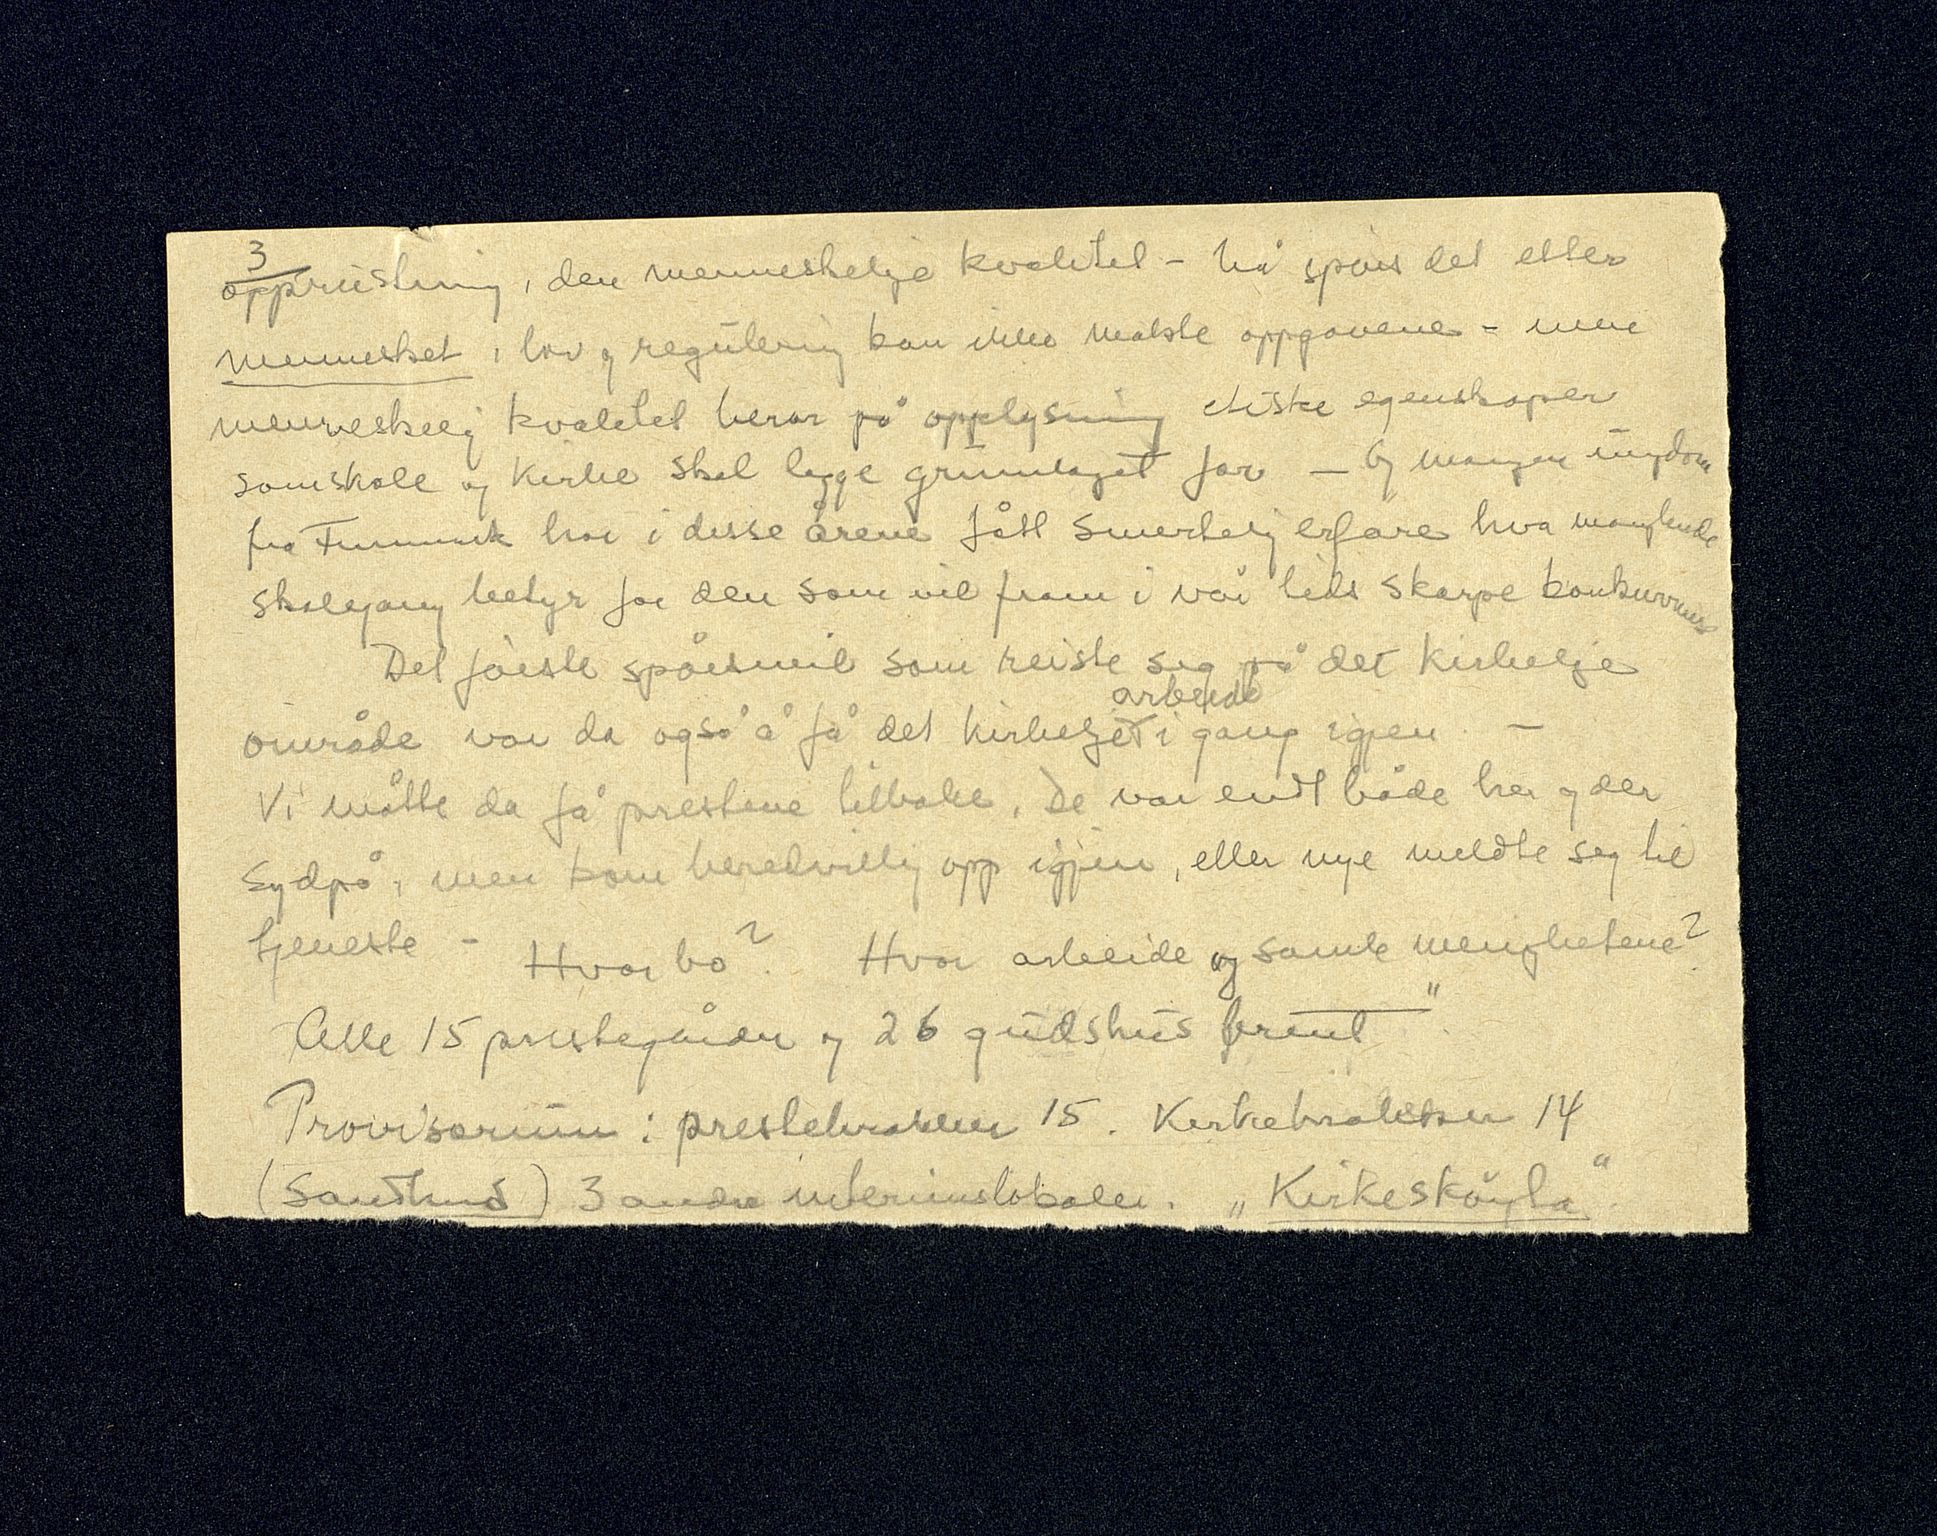 3
opprustning, den menneskelige kvalitet - Nå spörs det etter
mennesket, lov og regulering kan ikke makte oppgavene - men
menneskelig kvalitet berar på opplysning etiske egenskaper
som skole og kirke skal legge grunnlaget for - Og mangen ungdom
fra Finnmark har i disse årene fått smertelig erfare hva manglende
skolegang betyr for den som vil fram i vår tids skarpe konkurranse
Det förste spörsmål som reiste seg på det kirkelige
arbeide
område var da også å få det kirkelige i gang igjen -
Vi måtte da få prestene tilbake. De var endt både her og der
sydpå, men kom beredvillig opp igjen, eller nye meldte seg til
tjeneste - Hvor bo? Hvor arbeide og samle menighetene?
Alle 15 prestegårder og 26 gudshus brent"
Provisorium: prestebrakker 15. Kirkebrakker 14
(Sandlund) 3 andre interimslokaler. „Kirkesköyta"